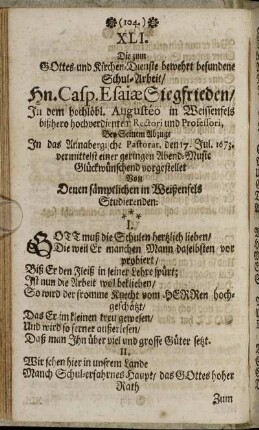 (104.)
XLI.
Die zum
GOttes- und Kirchen-Dienste bewehrt befundene
Schul-Arbeit/
Hn. Casp. Esaiæ Siegfrieden/
In dem hochlöbl. Augustêo in Weissenfels
bißhero hochverdienten Rectori und Professori,
Bey Seinem Abzuge
In das Annabergische Pastorat, den 17. Jul. 1673.
vermittelst einer geringen Abend-Music
Glückwünschend vorgestellet
Von
Denen sämptlichen in Weißenfels
Studierenden.
* * *
I.
GOTT muß die Schulen hertzlich lieben/
Die weil Er manchen Mann daselbsten vor
probiert/
Biß Er den Fleiß in seiner Lehre spürt;
Ist nun die Arbeit wol beklieben/
So wird der fromme Knecht vom HERRen hoch-
geschätzt/
Das Er im kleinen treu gewesen/
Und wird so ferner außerlesen/
Daß man Ihn über viel und grosse Güter setzt.
II.
Wir sehen hier in unsrem Lande
Manch Schul-erfahrnes Haupt/ das GOttes hoher
Rath
Zum